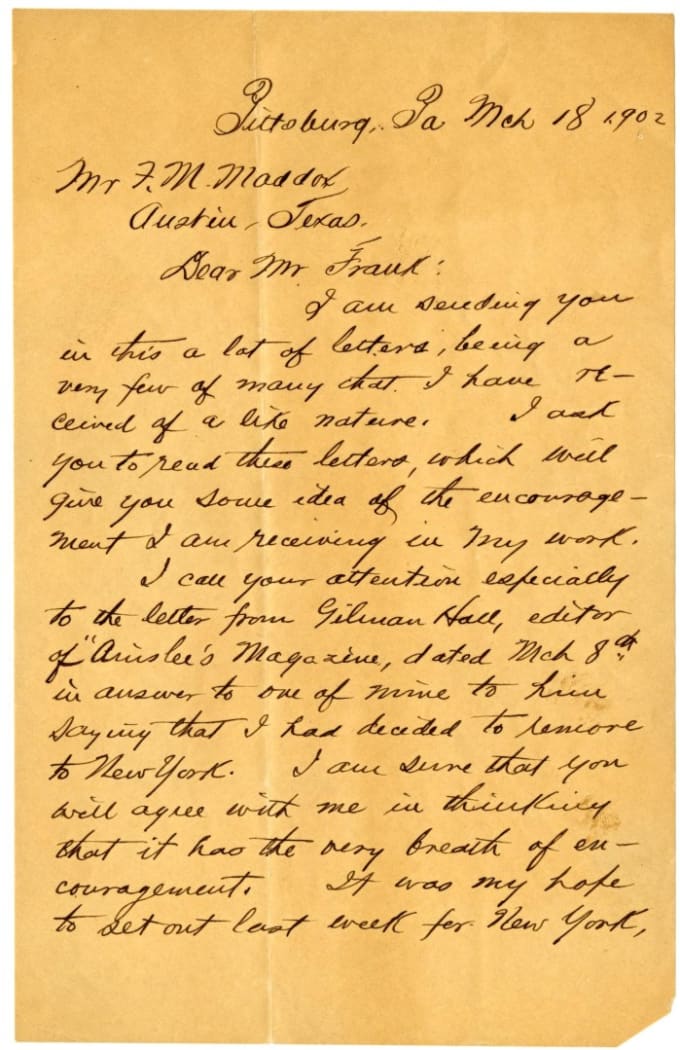 Pittsburg, Pa Mch 18 1902
Mr F. M. Maddox
Austin, Texas.
Dear Mr. Frank:
I am sending you
in this a lot of letters, being a
very few of many that I have re-
ceived of a like nature. I ask
you to read these letters, which will
give you some idea of the encourage-
ment I am receiving in my work.
I call your attention especially
to the letter from Gilman Hall, editor
of "Ainslee's Magazine, dated Mch 8th
in answer to one of mine to him
saying that I had decided to remove
to New York. I am sure that you
will agree with me in thinking
that it has the very breath of en-
couragement. It was my hope
to set out last week for New York,